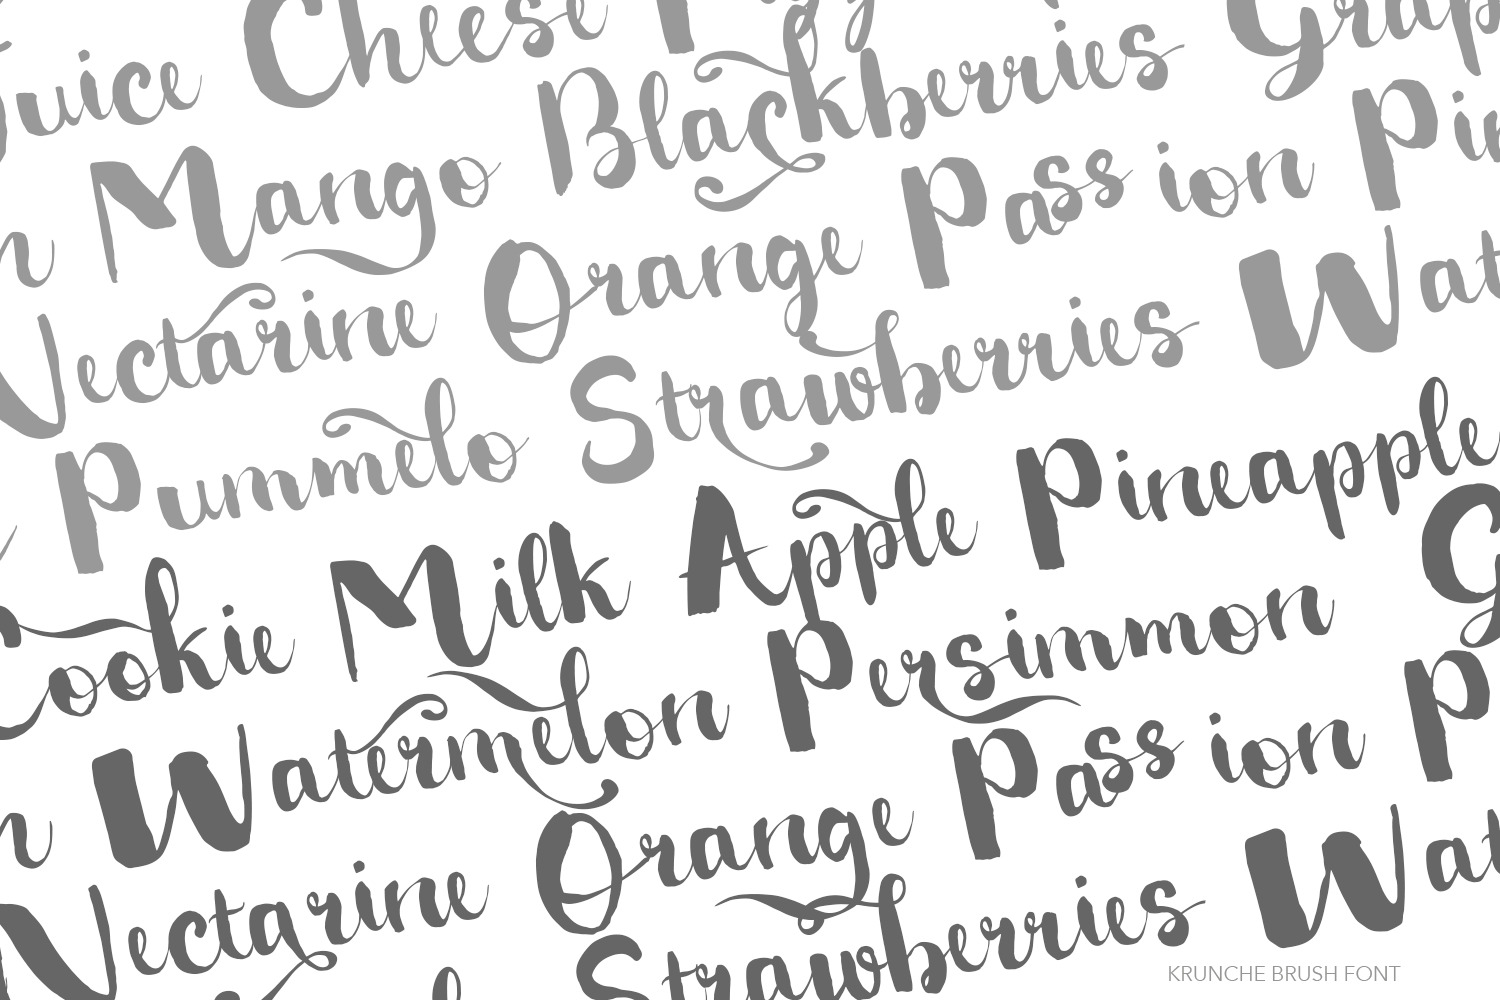 Juice Cheese
Mango Blackberries Grap
n Nectarine Orange Pass ion Pin
Pummelo Strawberries Wat
Cookie Milk Apple Pineapple
n Watermelon Persimmon G
Nectarine Orange Pass ion P
Strawberries Wat
KRUNCHE BRUSH FONT